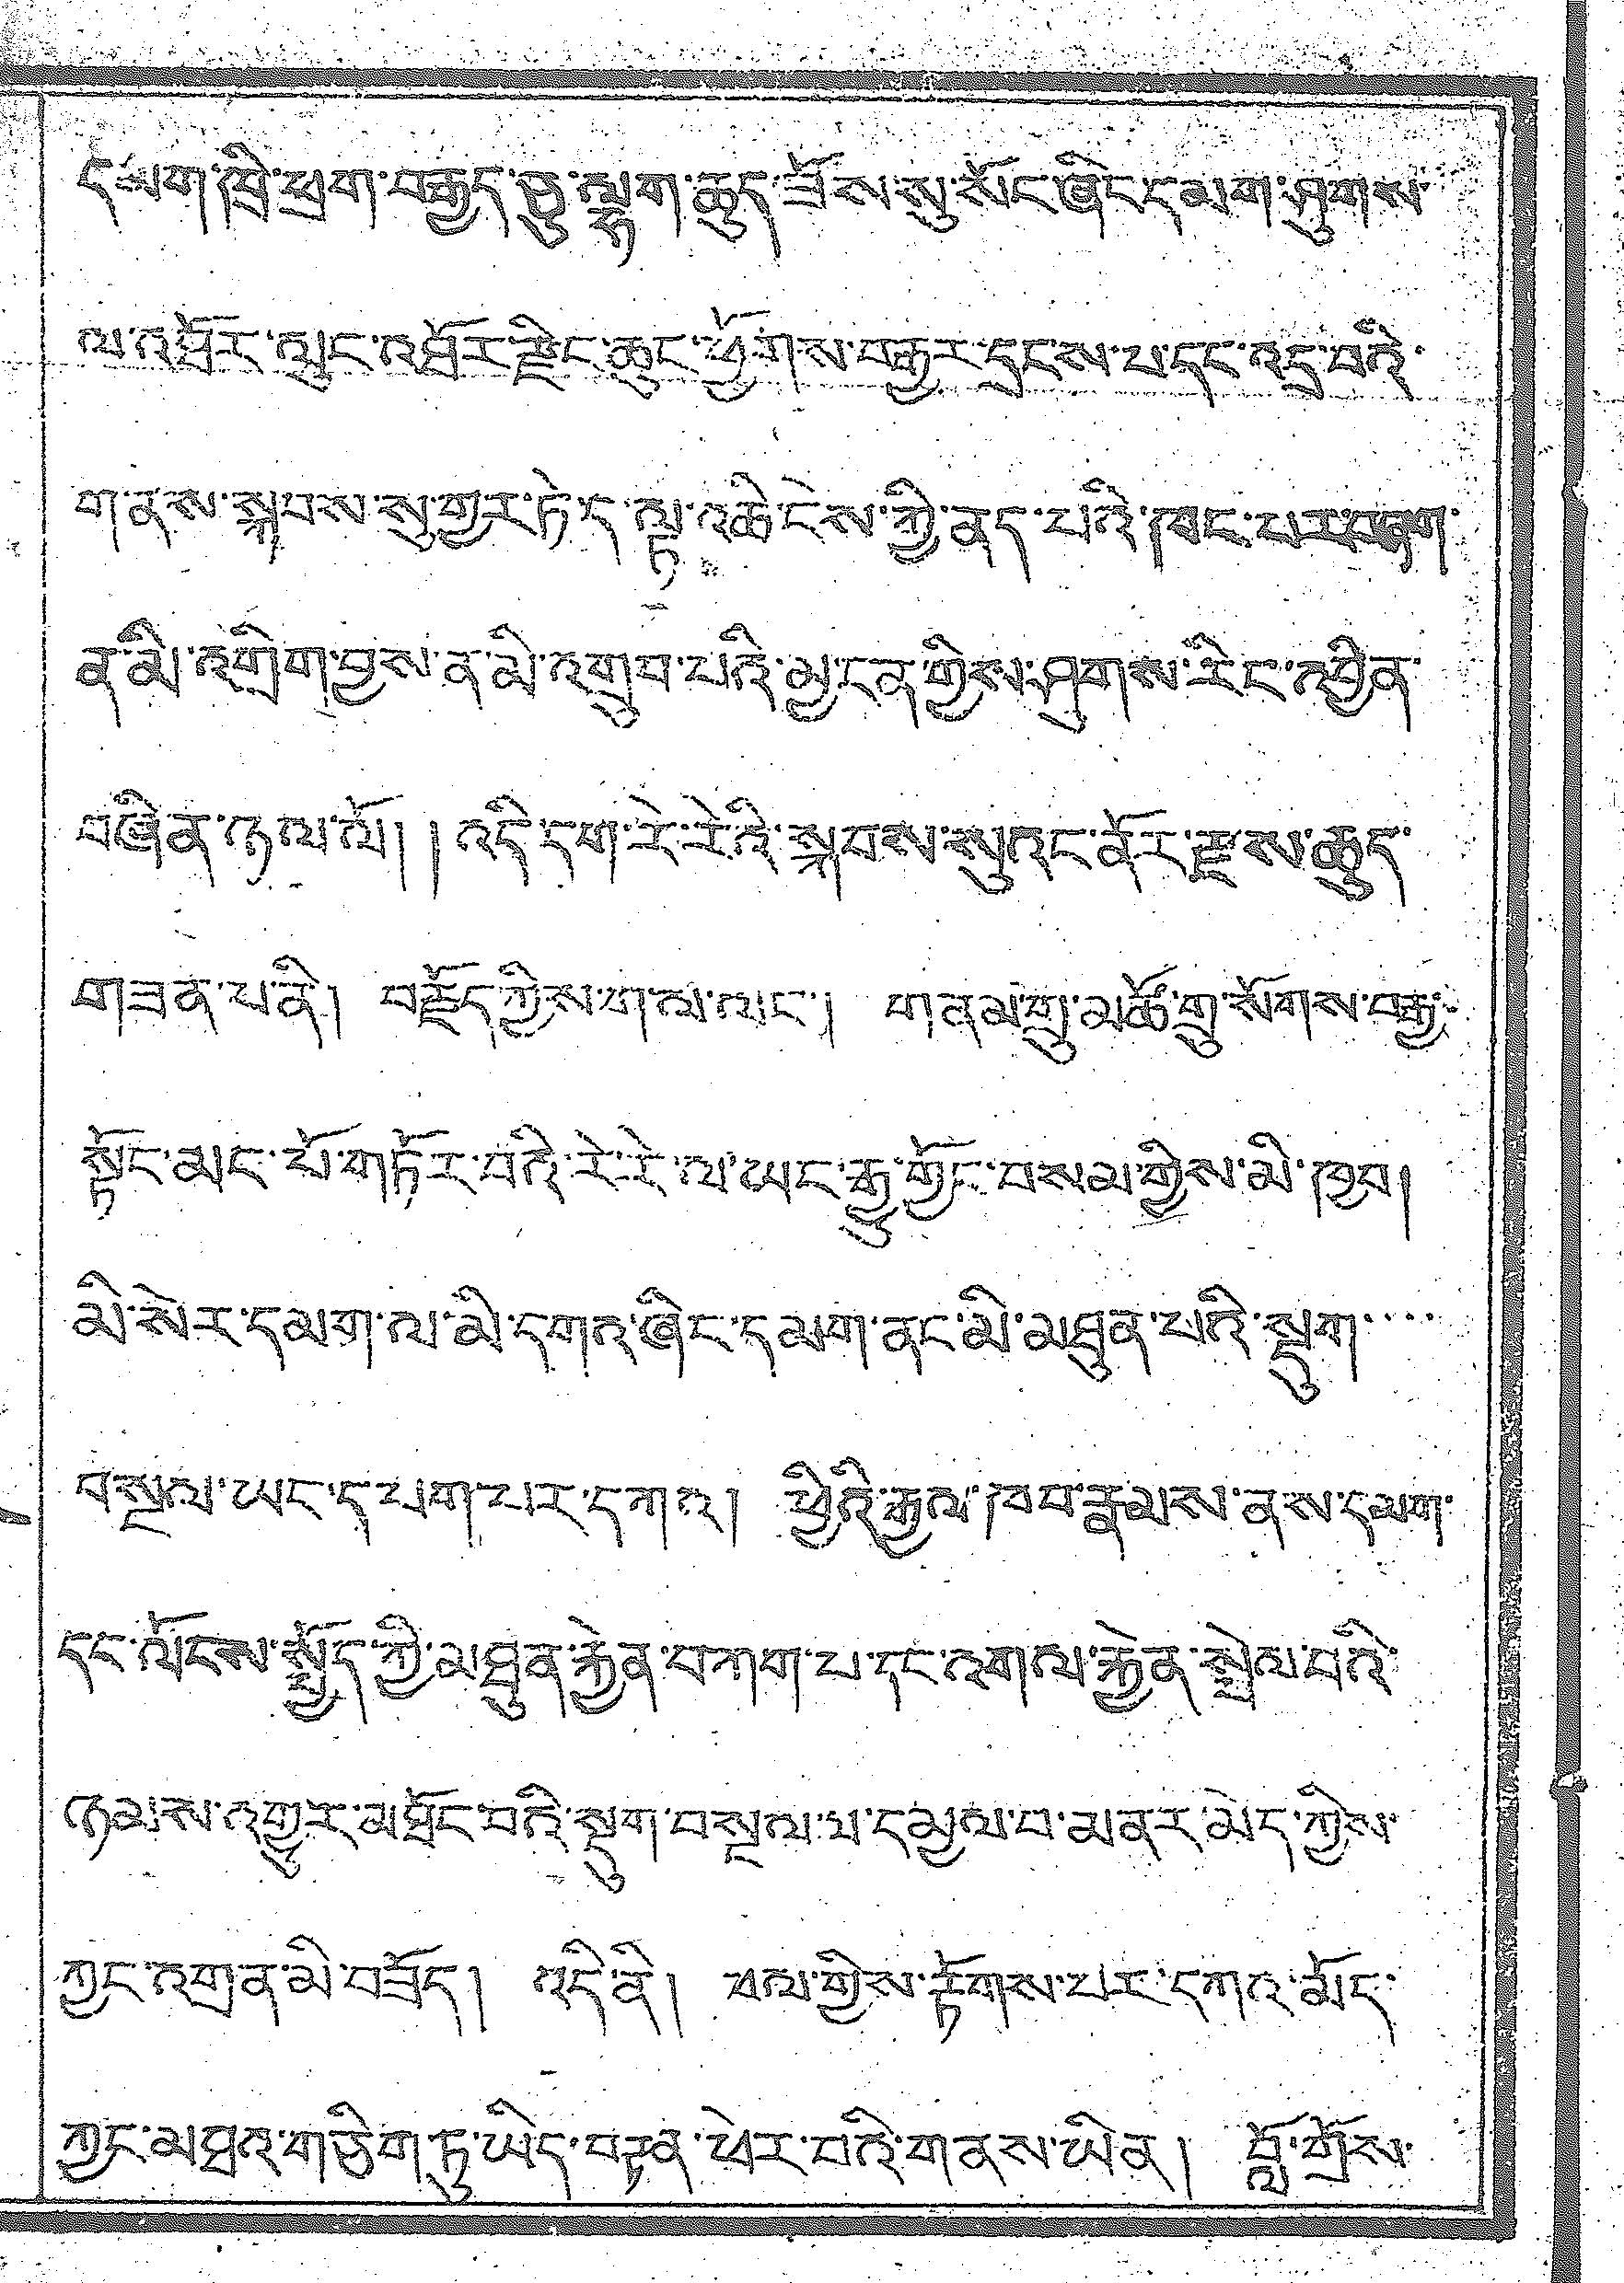 དམག་ཁྲི་ཕྲག་བརྒྱད་ཅུ་ལྷག་ཆུད་ཟོས་སུ་སོང་ཞིང་དམག་ཤུགས་
ལ་འབྱོར་ལུང་འབྱོར་རྙིང་ཆུང་ཕྱོགས་བརྒྱར་དྲངས་པ་དང་འདྲ་བའི་
གནས་སྐབས་སུ་གྱུར་ཏེ་ད་ལྟ་འཆི་ངེས་ཀྱི་ནད་པའི་ཁང་པར་བཞག་
ན་མི་འགྲིག་བྱས་ན་མི་འགྲུབ་པའི་མྱ་ངན་གྱིས་ཤུགས་རིང་འབྱིན་
བཞིན་ཉལ་ལོ། །འདི་དག་རེ་རེའི་སྐབས་སུའང་ནོར་རྫས་ཆུད་
གཟན་པ་ནི། བརྗོད་ཀྱིས་ག་ལ་ལང་། གནམ་གྲུ་མཚོ་གྲུ་སོགས་བརྒྱ་
སྟོང་མང་པོ་གཏོར་བའི་རེ་རེ་ལ་ཡང་རྒྱུ་གྱོང་བསམ་གྱིས་མི་ཁྱབ།
མི་སེར་དམག་ལ་མི་དགའ་ཞིང་དམག་ནང་མི་མཐུན་པའི་སྡུག་....
བསྔལ་ཡང་དཔག་པར་དཀའ། ཕྱིའི་རྒྱལ་ཁབ་རྣམས་ནས་དམག་
དང་ལོངས་སྤྱོད་ཀྱི་མཐུན་རྐྱེན་བཀག་པ་དང་འགལ་རྐྱེན་སྤེལ་བའི་
ཉམས་འགྱུར་མཐོང་བའི་སྡུག་བསྔལ་པ་དམྱལ་བ་མནར་མེད་ཀྱིས་
ཀྱང་འགྲན་མི་བཟོད། འདི་ནི། ཕལ་གྱིས་རྟོགས་པར་དཀའ་མོད་
ཀྱང་མཐའ་གཅིག་ཏུ་ཡིད་བརྟན་ཕེར་བའི་གནས་ཡིན། བློ་གྲོས་